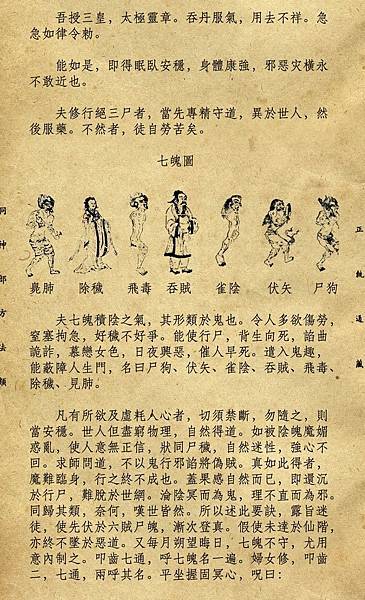 吾授三皇，太極靈章。吞丹服氣，用去不祥。急
急如律令勅。
能如是，即得眠臥安穩，身體康強，邪惡灾橫永
不敢近也。
夫修行絕三尸者，當先專精守道，異於世人，然
後服藥。不然者，徒自勞苦矣。
七魄圖
臭肺　除穢　飛毒　吞賊　雀陰　伏矢　尸狗
夫七魄積陰之氣，其形類於鬼也。令人多欲傷勞，
窒塞拘急，好穢不好爭。能使行尸，背生向死，諂曲
詭詐，慕戀女色，日夜興惡，催人早死。遣入鬼趣，
能蔽障人生門，名曰尸狗、伏矢、雀陰、吞賊、飛毒、
除穢、臭肺。
凡有所欲及虛耗人心者，切須禁斷，勿隨之，則
當安穩。世人但盡窮物理，自然得道。如被陰魄魔媚
惑亂，使人意無正信，狀同尸穢，自然迷性，強心不
回。求師問道，不以鬼行邪諂將偽賊。真如此得者，
魔難臨身，行之終不成也。蓋果感自然而已，即還沉
於行尸，難脫於世網。淪陰冥而為鬼，理不直而為邪。
同歸其類，奈何，嘆世皆然。所以述此要訣，露旨迷
徒，使先伏於六賊尸魄，漸次登真。假使未達于仙階，
亦終不墜於惡道。又每月朔望晦日，七魄不守，尤用
意內制之。叩齒七通，呼七魄名一遍。婦女修，叩齒
二，七通，兩呼其名。平坐握固冥心，呪曰：
洞神部方法類
正統道藏